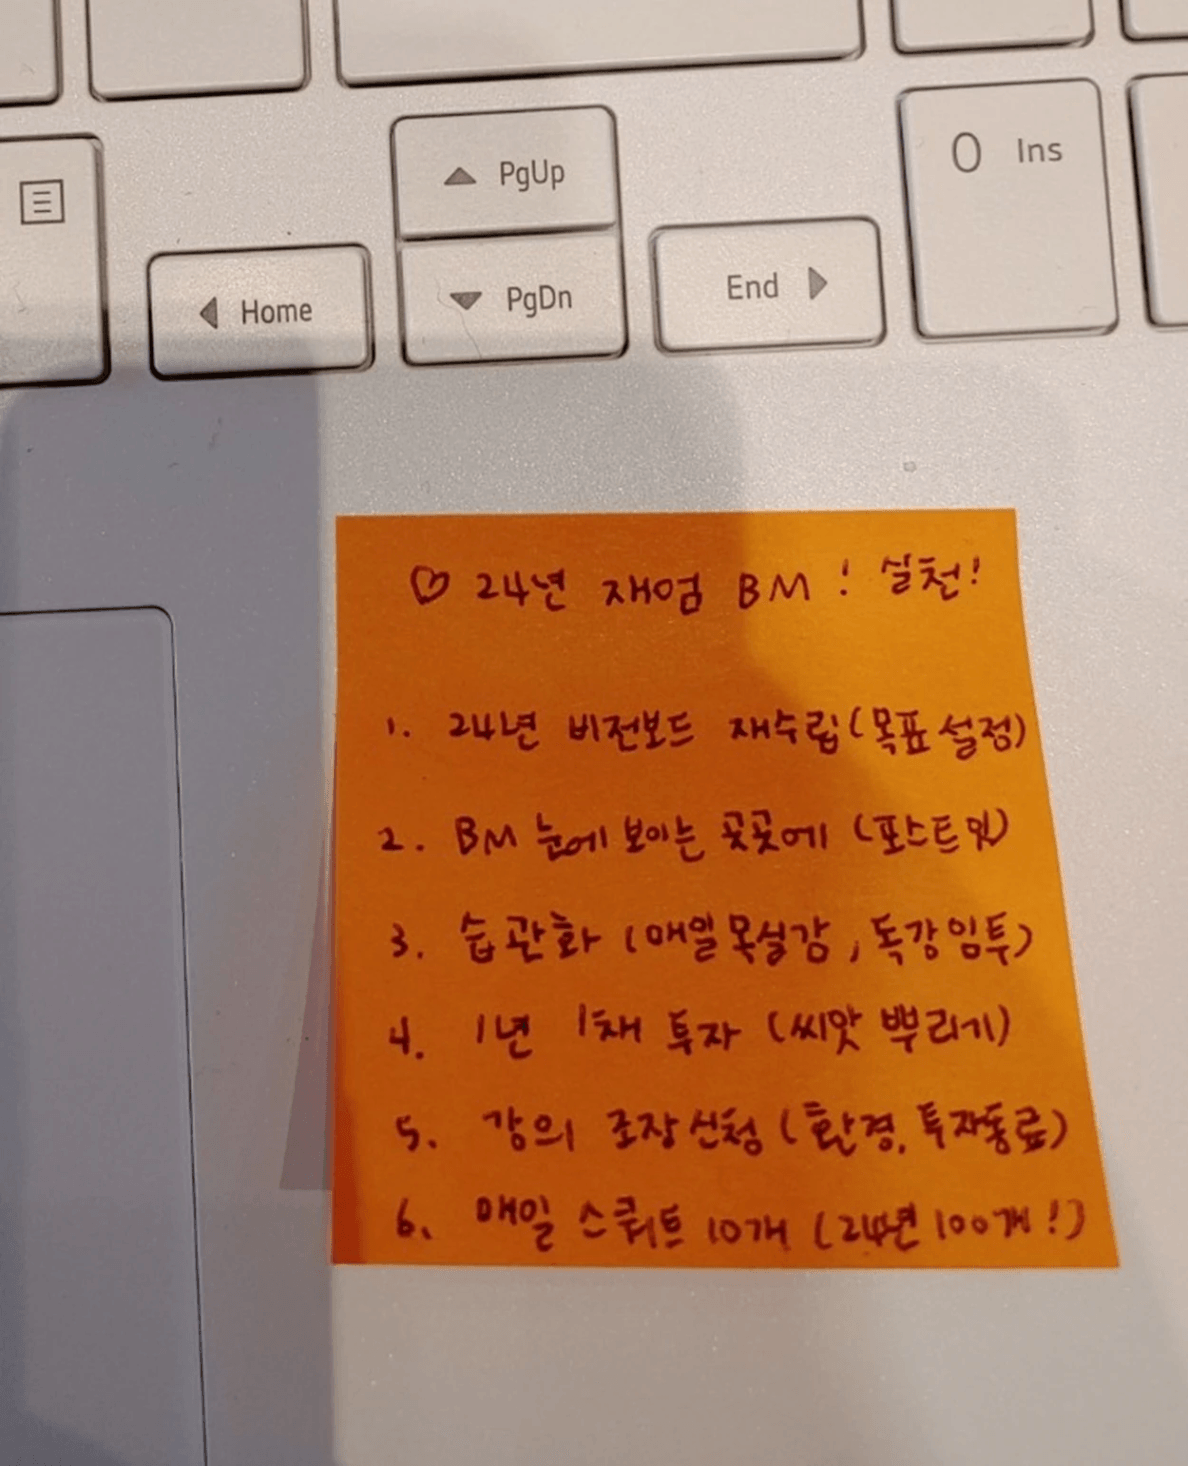 ▲ PgUp
0 Ins
◀ Home
▼ PgDn
End ▶
♡ 24년 재엄 BM ! 실천!
1. 24년 비전보드 재수립(목표 설정)
2. BM 눈에 보이는 곳곳에 (포스트잇)
3. 습관화 (매일목실감, 독강임투)
4. 1년 1채 투자 (씨앗 뿌리기)
5. 강의 조장신청 (환경, 투자동료)
6. 매일 스쿼트 10개 (24년 100개!)